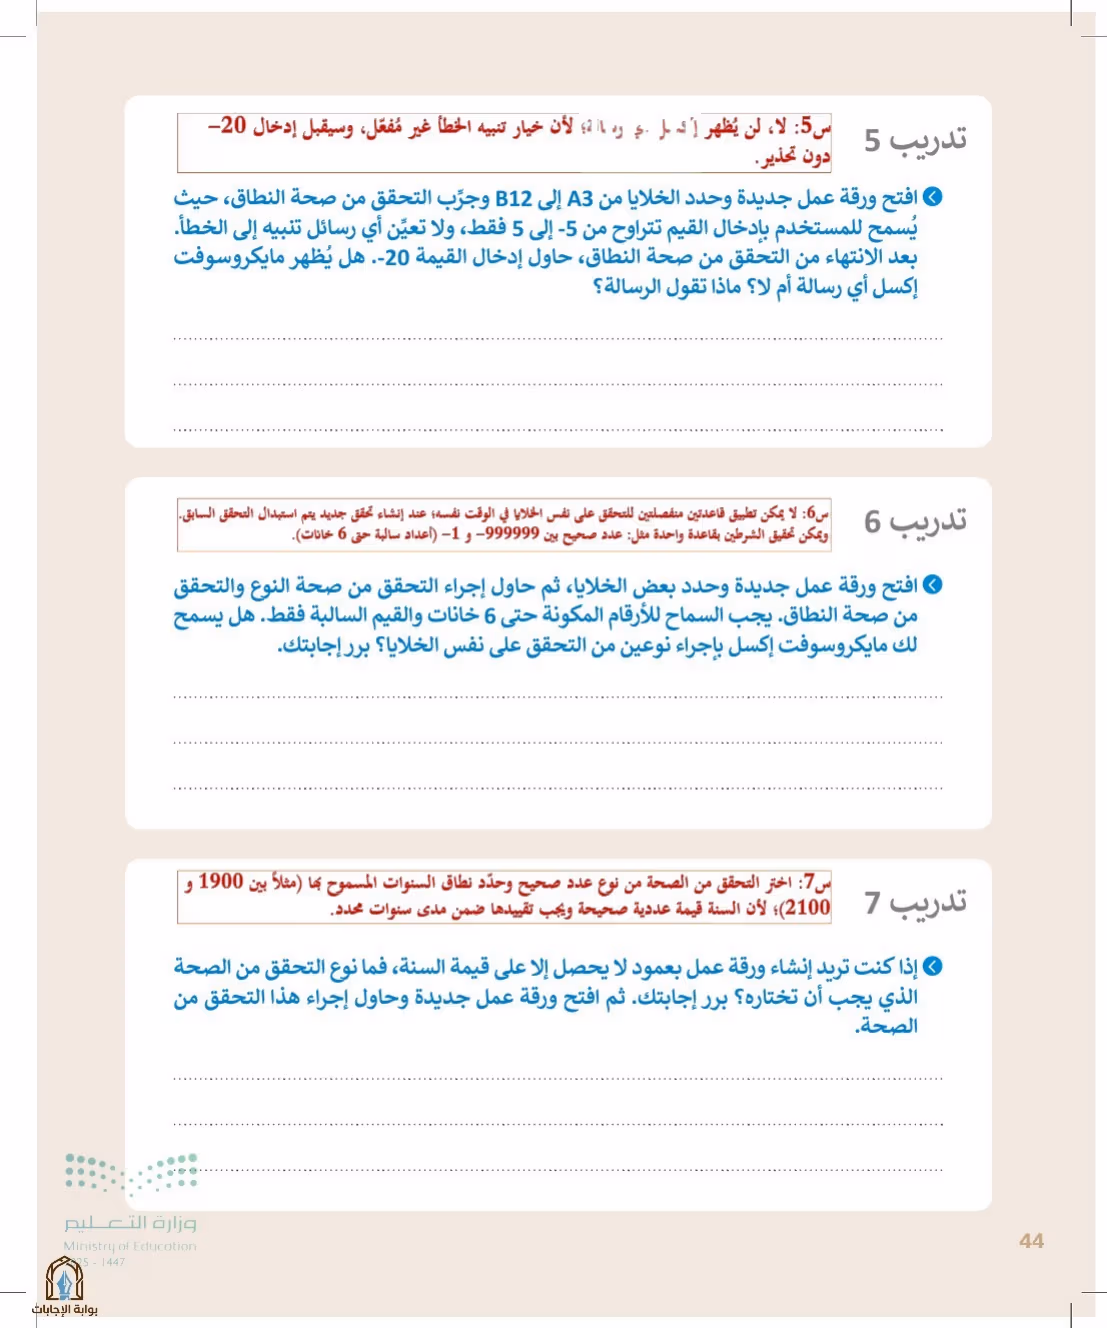 تدريب 5
س5: لا، لن يُظهر لأن خيار تنبيه الخطأ غير مُفعّل، وسيقبل إدخال 20–
دون تحذير.
افتح ورقة عمل جديدة وحدد الخلايا من A3 إلى B12 وجرِّب التحقق من صحة النطاق، حيث
يُسمح للمستخدم بإدخال القيم تتراوح من 5- إلى 5 فقط، ولا تعيّن أي رسائل تنبيه إلى الخطأ.
بعد الانتهاء من التحقق من صحة النطاق، حاول إدخال القيمة 20-. هل يُظهر مايكروسوفت
إكسل أي رسالة أم لا؟ ماذا تقول الرسالة؟
تدريب 6
س6: لا يمكن تطبيق قاعدتين منفصلتين للتحقق على نفس الخلايا في الوقت نفسه؛ عند إنشاء تحقق جديد يتم استبدال التحقق السابق.
ويمكن تحقيق الشرطين بقاعدة واحدة مثل: عدد صحيح بين 999999– و 1– (أعداد سالبة حتى 6 خانات).
افتح ورقة عمل جديدة وحدد بعض الخلايا، ثم حاول إجراء التحقق من صحة النوع والتحقق
من صحة النطاق. يجب السماح للأرقام المكونة حتى 6 خانات والقيم السالبة فقط. هل يسمح
لك مايكروسوفت إكسل بإجراء نوعين من التحقق على نفس الخلايا؟ برر إجابتك.
تدريب 7
س7: اختر التحقق من الصحة من نوع عدد صحيح وحدّد نطاق السنوات المسموح بها (مثلاً بين 1900 و
2100)؛ لأن السنة قيمة عددية صحيحة ويجب تقييدها ضمن مدى سنوات محدد.
إذا كنت تريد إنشاء ورقة عمل بعمود لا يحصل إلا على قيمة السنة، فما نوع التحقق من الصحة
الذي يجب أن تختاره؟ برر إجابتك. ثم افتح ورقة عمل جديدة وحاول إجراء هذا التحقق من
الصحة.
وزارة التعـــليم
Ministry of Education
- 1447
44
بوابة الإجابات